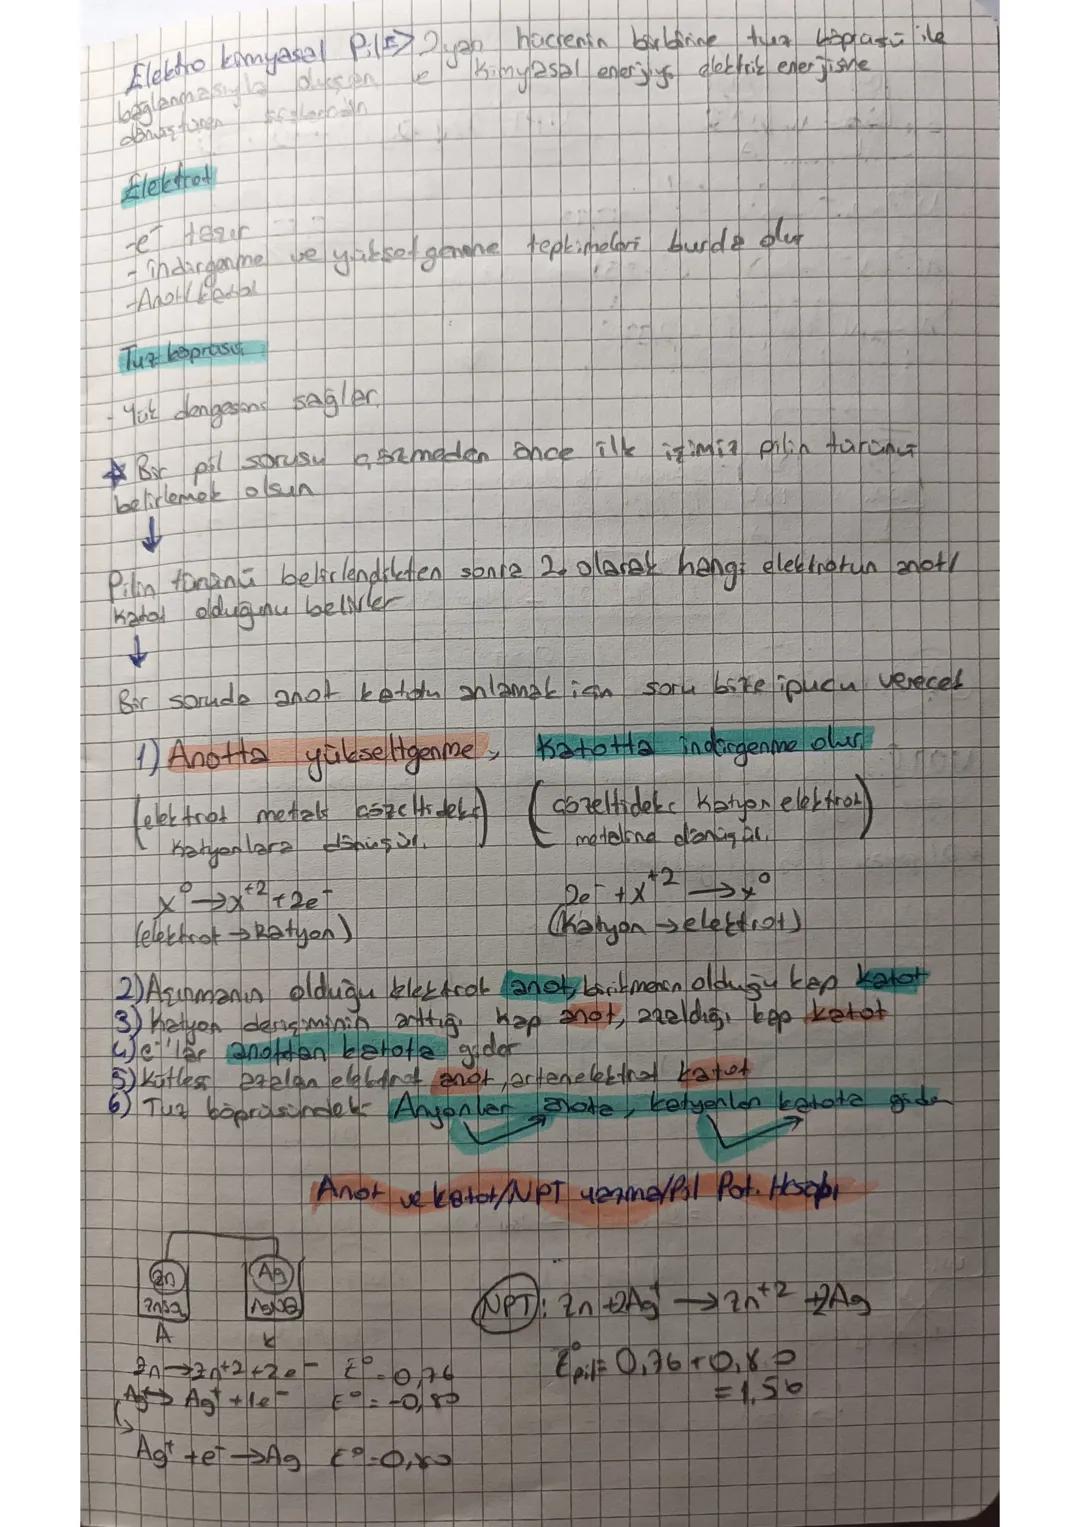 Elektro kimyasal Pil => 2 yarı hücrenin birbirine tuz köprüsü ile
bağlanmasıyla oluşan ve kimyasal enerjiyi elektrik enerjisine
dönüştüren
Elektrot
-e⁻ taşır
-İndirgenme ve yükseltgenme tepkimeleri burda olur
-Anot/katot
Tuz köprüsü
- Yük dengesini sağlar.
☆ Bir pil sorusu çözmeden önce ilk işimiz pilin türünü
belirlemek olsun
↓
Pilin türünü belirlendikten sonra 2. olarak hangi elektrotun anot/
katot olduğunu belirler
↓
Bir soruda anot katotu anlamak için soru bize ipucu verecek
1) Anotta yükseltgenme, Katotta indirgenme olur.
(elektrot metali çözeltideki (çözeltideki katyon elektrot)
katyonlara dönüşür. metaline dönüşür.
X⁰→X⁺²+2e⁻ 2e⁻+X⁺²→X⁰
(elektrot→katyon) (Katyon→elektrot)
2) Aşınmanın olduğu elektrot anot, birikmenin olduğu kap katot
3) Katyon derişiminin arttığı kap anot, azaldığı kap katot
4) e⁻'lar anottan katota gider
5) Kütlesi azalan elektrot anot, artan elektrot katot
6) Tuz köprüsündeki Anyonlar anota, katyonlar katota gider
Anot ve katot/NPT yazma/Pil Pot. Hesabı
Zn Ag
A K
NPT: Zn+2Ag⁺→Zn⁺²+2Ag
Zn→Zn+2+2e⁻ E⁰=0,76
E⁰pil=0,76+0,80
Ag→Ag⁺+1e⁻ E⁰=-0,80
=1,56
Ag⁺+e⁻→Ag E⁰=0,80